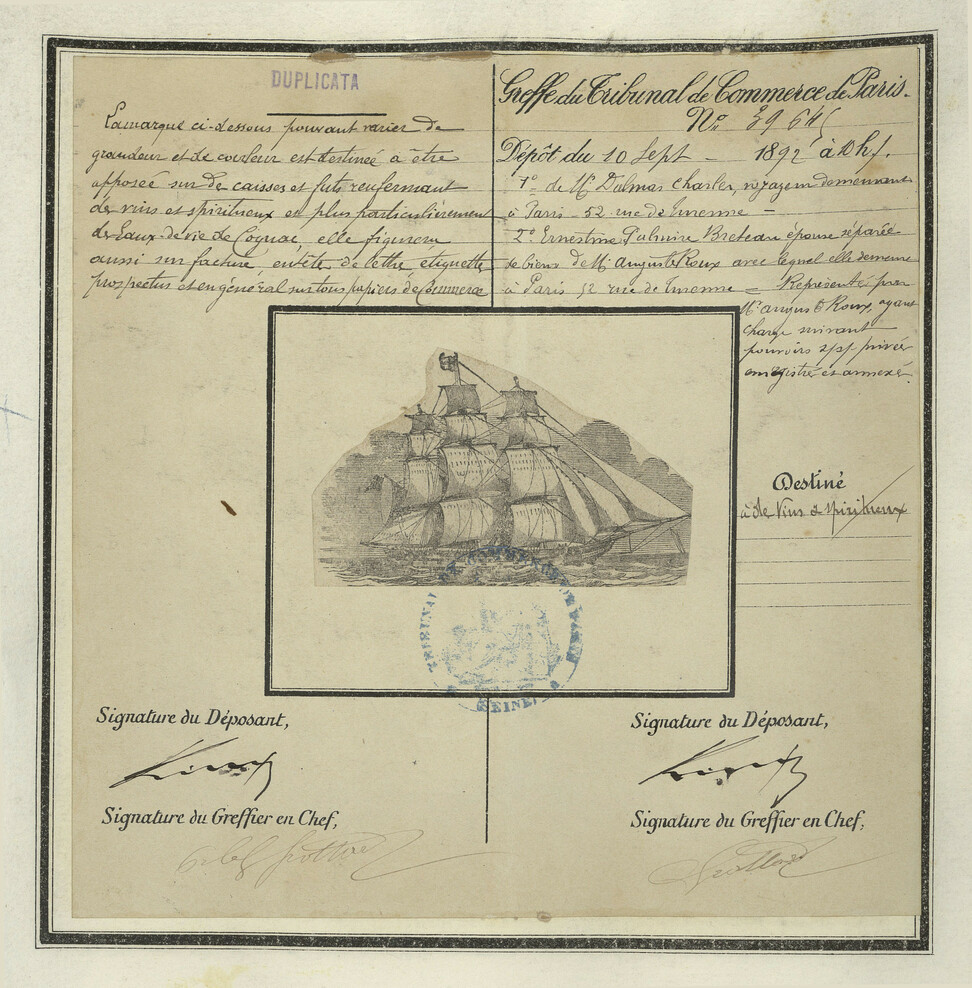 DUPLICATA
La marque ci-dessous pouvant varier de
grandeur et de couleur est destinée à être
apposée sur de caisses et futs renfermant
de vins et spiritueux et plus particulièrement
des Eaux-de-vie de Cognac, elle figurera
aussi sur facture, entête de lettre, etiquette
prospectus et en général sur tous papiers de Commerce
Greffe du Tribunal de Commerce de Paris.
N° 39 645
Dépôt du 10 Sept - 1892 à 10 h f.
1° de Mr Dalmas Charles, voyageur demeurant
à Paris - 52 rue de Turenne -
2° Ernestine Palmire Breteau épouse séparée
de biens de Mr Auguste Roux avec lequel elle demeure
à Paris 52 rue de Turenne = Représenté par
Mr Auguste Roux, ayant
charge suivant
pouvoirs ssp privée
enregistré et annexé.
Destiné
à de Vins & spiritueux
TRIBUNAL DE COMMERCE
SEINE
Signature du Déposant,
Signature du Greffier en Chef,
Signature du Déposant,
Signature du Greffier en Chef,